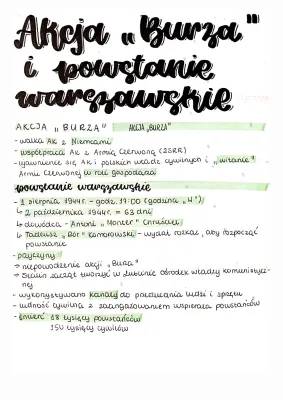 Akcja „Burza"
i powstanie
warszawskie
AKCJA „BURZA" AKCJA „BURZA"
- walka AK z Niemcami
- współpraca AK z Armią Czerwoną (ZSRR)
- ujawnienie się AK i polskich władz cywilnych i „witanie"
Armii Czerwonej w roli gospodarza
powstanie warszawskie
- 1 sierpnia 1944r. - godz. 17:00 (godzina „W")
↳ 2 października 1944r. = 63 dni
↳ dowódca - Antoni „Monter" Chruściel
↳ Tadeusz „Bór" Komorowski - wydał rozkaz, aby rozpocząć
powstanie
- przyczyny
→ niepowodzenie akcji „Burza"
→ Stalin zaczął tworzyć w Lublinie ośrodek władzy komunistycz-
nej
- wykorzystywano kanały do przerzucania ludzi i sprzętu
- ludność cywilna z zaangażowaniem wspierała powstańców
- śmierć 18 tysięcy powstańców
150 tysięcy cywilów